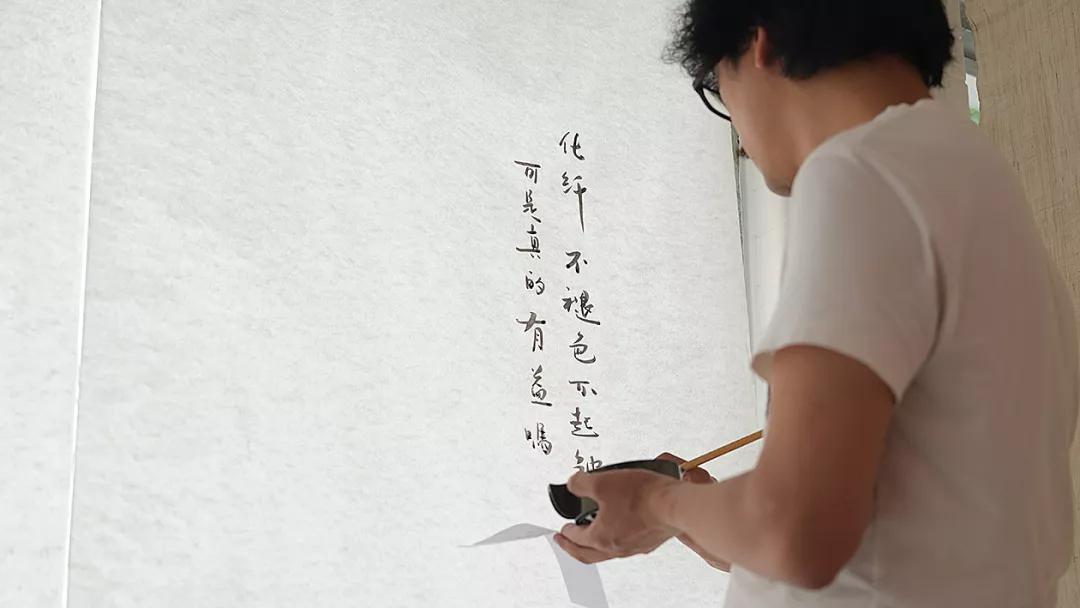 化纤不褪色不起皱
可是真的有益吗